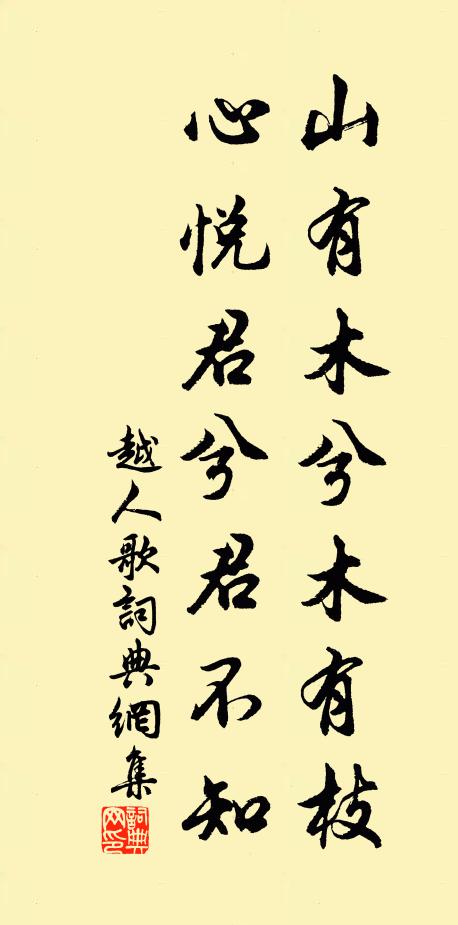 山有木兮木有枝
心悦君兮君不知
越人歌詞典網集
詞典網印